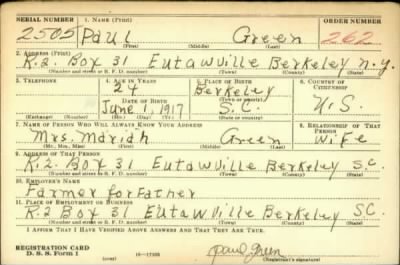 SERIAL NUMBER 1. NAME (Print) ORDER NUMBER
2505 Paul Green 262
(First) (Middle) (Last)
2. ADDRESS (Print)
R.2. Box 31 Eutawville Berkeley N.Y.
(Number and street or R. F. D. number) (Town) (County) (State)
3. TELEPHONE 4. AGE IN YEARS 5. PLACE OF BIRTH 6. COUNTRY OF CITIZENSHIP
24 Berkeley
DATE OF BIRTH (Town or county)
June 1, 1917 S.C. U.S.
(Exchange) (Number) (Mo.) (Day) (Yr.) (State or country)
7. NAME OF PERSON WHO WILL ALWAYS KNOW YOUR ADDRESS 8. RELATIONSHIP OF THAT PERSON
Mrs. Mariah Green Wife
(Mr., Mrs., Miss) (First) (Middle) (Last)
9. ADDRESS OF THAT PERSON
R.2. Box 31 Eutawville Berkeley S.C.
(Number and street or R. F. D. number) (Town) (County) (State)
10. EMPLOYER'S NAME
Farmer for Father
11. PLACE OF EMPLOYMENT OR BUSINESS
R.2 Box 31 Eutawville Berkeley S.C.
(Number and street or R. F. D. number) (Town) (County) (State)
I AFFIRM THAT I HAVE VERIFIED ABOVE ANSWERS AND THAT THEY ARE TRUE.
REGISTRATION CARD
D. S. S. Form 1 (over) paul green
(Registrant's signature)